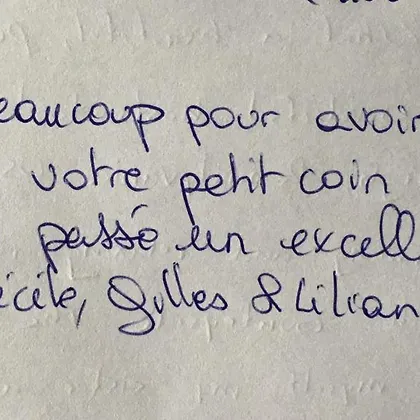 eaucoup pour avoir
votre petit coin
passé un excell
écile, Gilles & Lilian